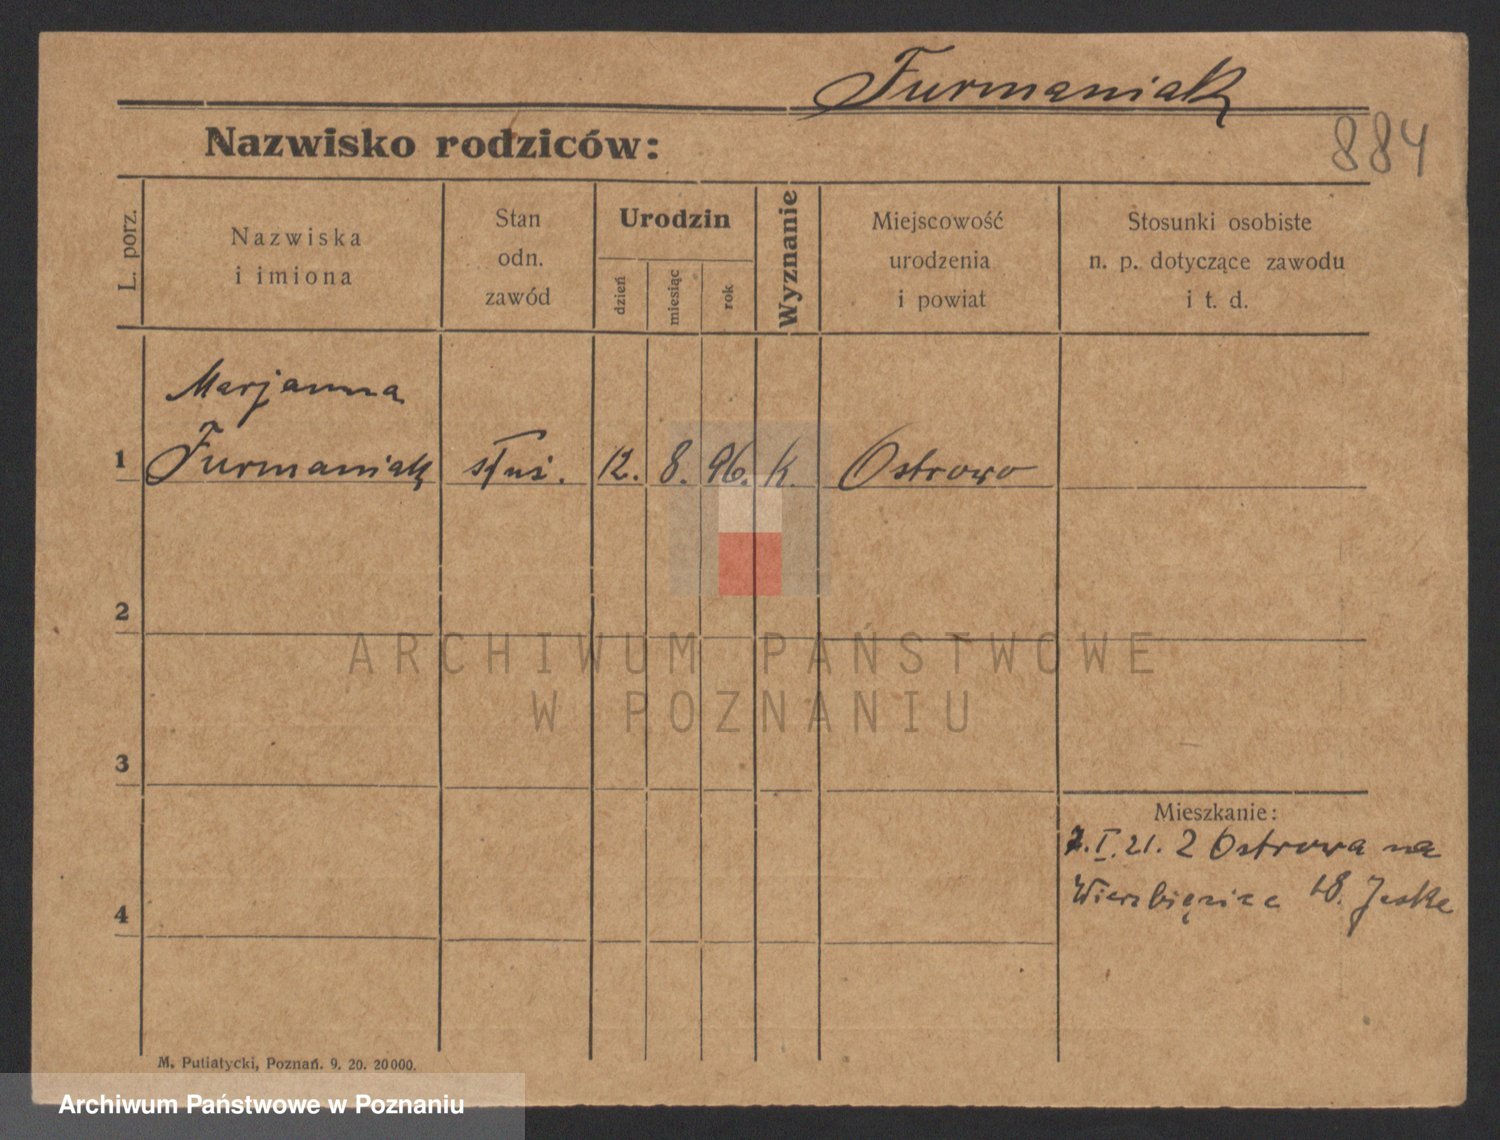 Furmaniak
884
Nazwisko rodziców:
L. porz.
Nazwiska
i imiona
Stan
odn.
zawód
Urodzin
dzień
miesiąc
rok
Wyznanie
Miejscowość
urodzenia
i powiat
Stosunki osobiste
n. p. dotyczące zawodu
i t. d.
Marjanna
1 Furmaniak służ. 12. 8. 96. k. Ostrowo
2
ARCHIWUM PAŃSTWOWE
W POZNANIU
3
Mieszkanie:
.I.21. z Ostrowa na
Wierzbięcice 18. Jeske
4
M. Putiatycki, Poznań. 9. 20. 20000.
Archiwum Państwowe w Poznaniu